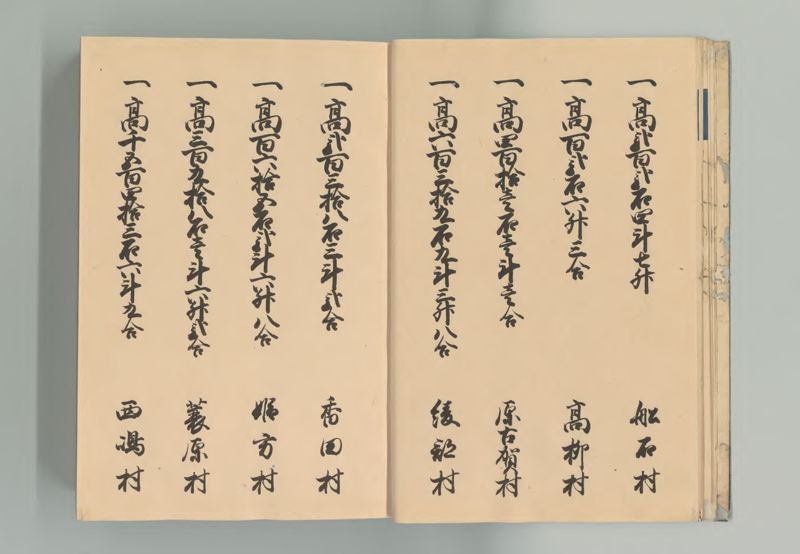 一高弐百弐石四斗七升
舩石村
一高百弐石六升三合
高柳村
一高四百拾壱石壱斗壱合
原古賀村
一高六百三拾五石九斗三升八合
綾部村
一高弐百三拾八石三斗弐合
香田村
一高百六拾五石弐斗六升八合
姫方村
一高三百五拾八石壱斗六升弐合
蓑原村
一高千五百四拾三石六斗五合
西嶋村